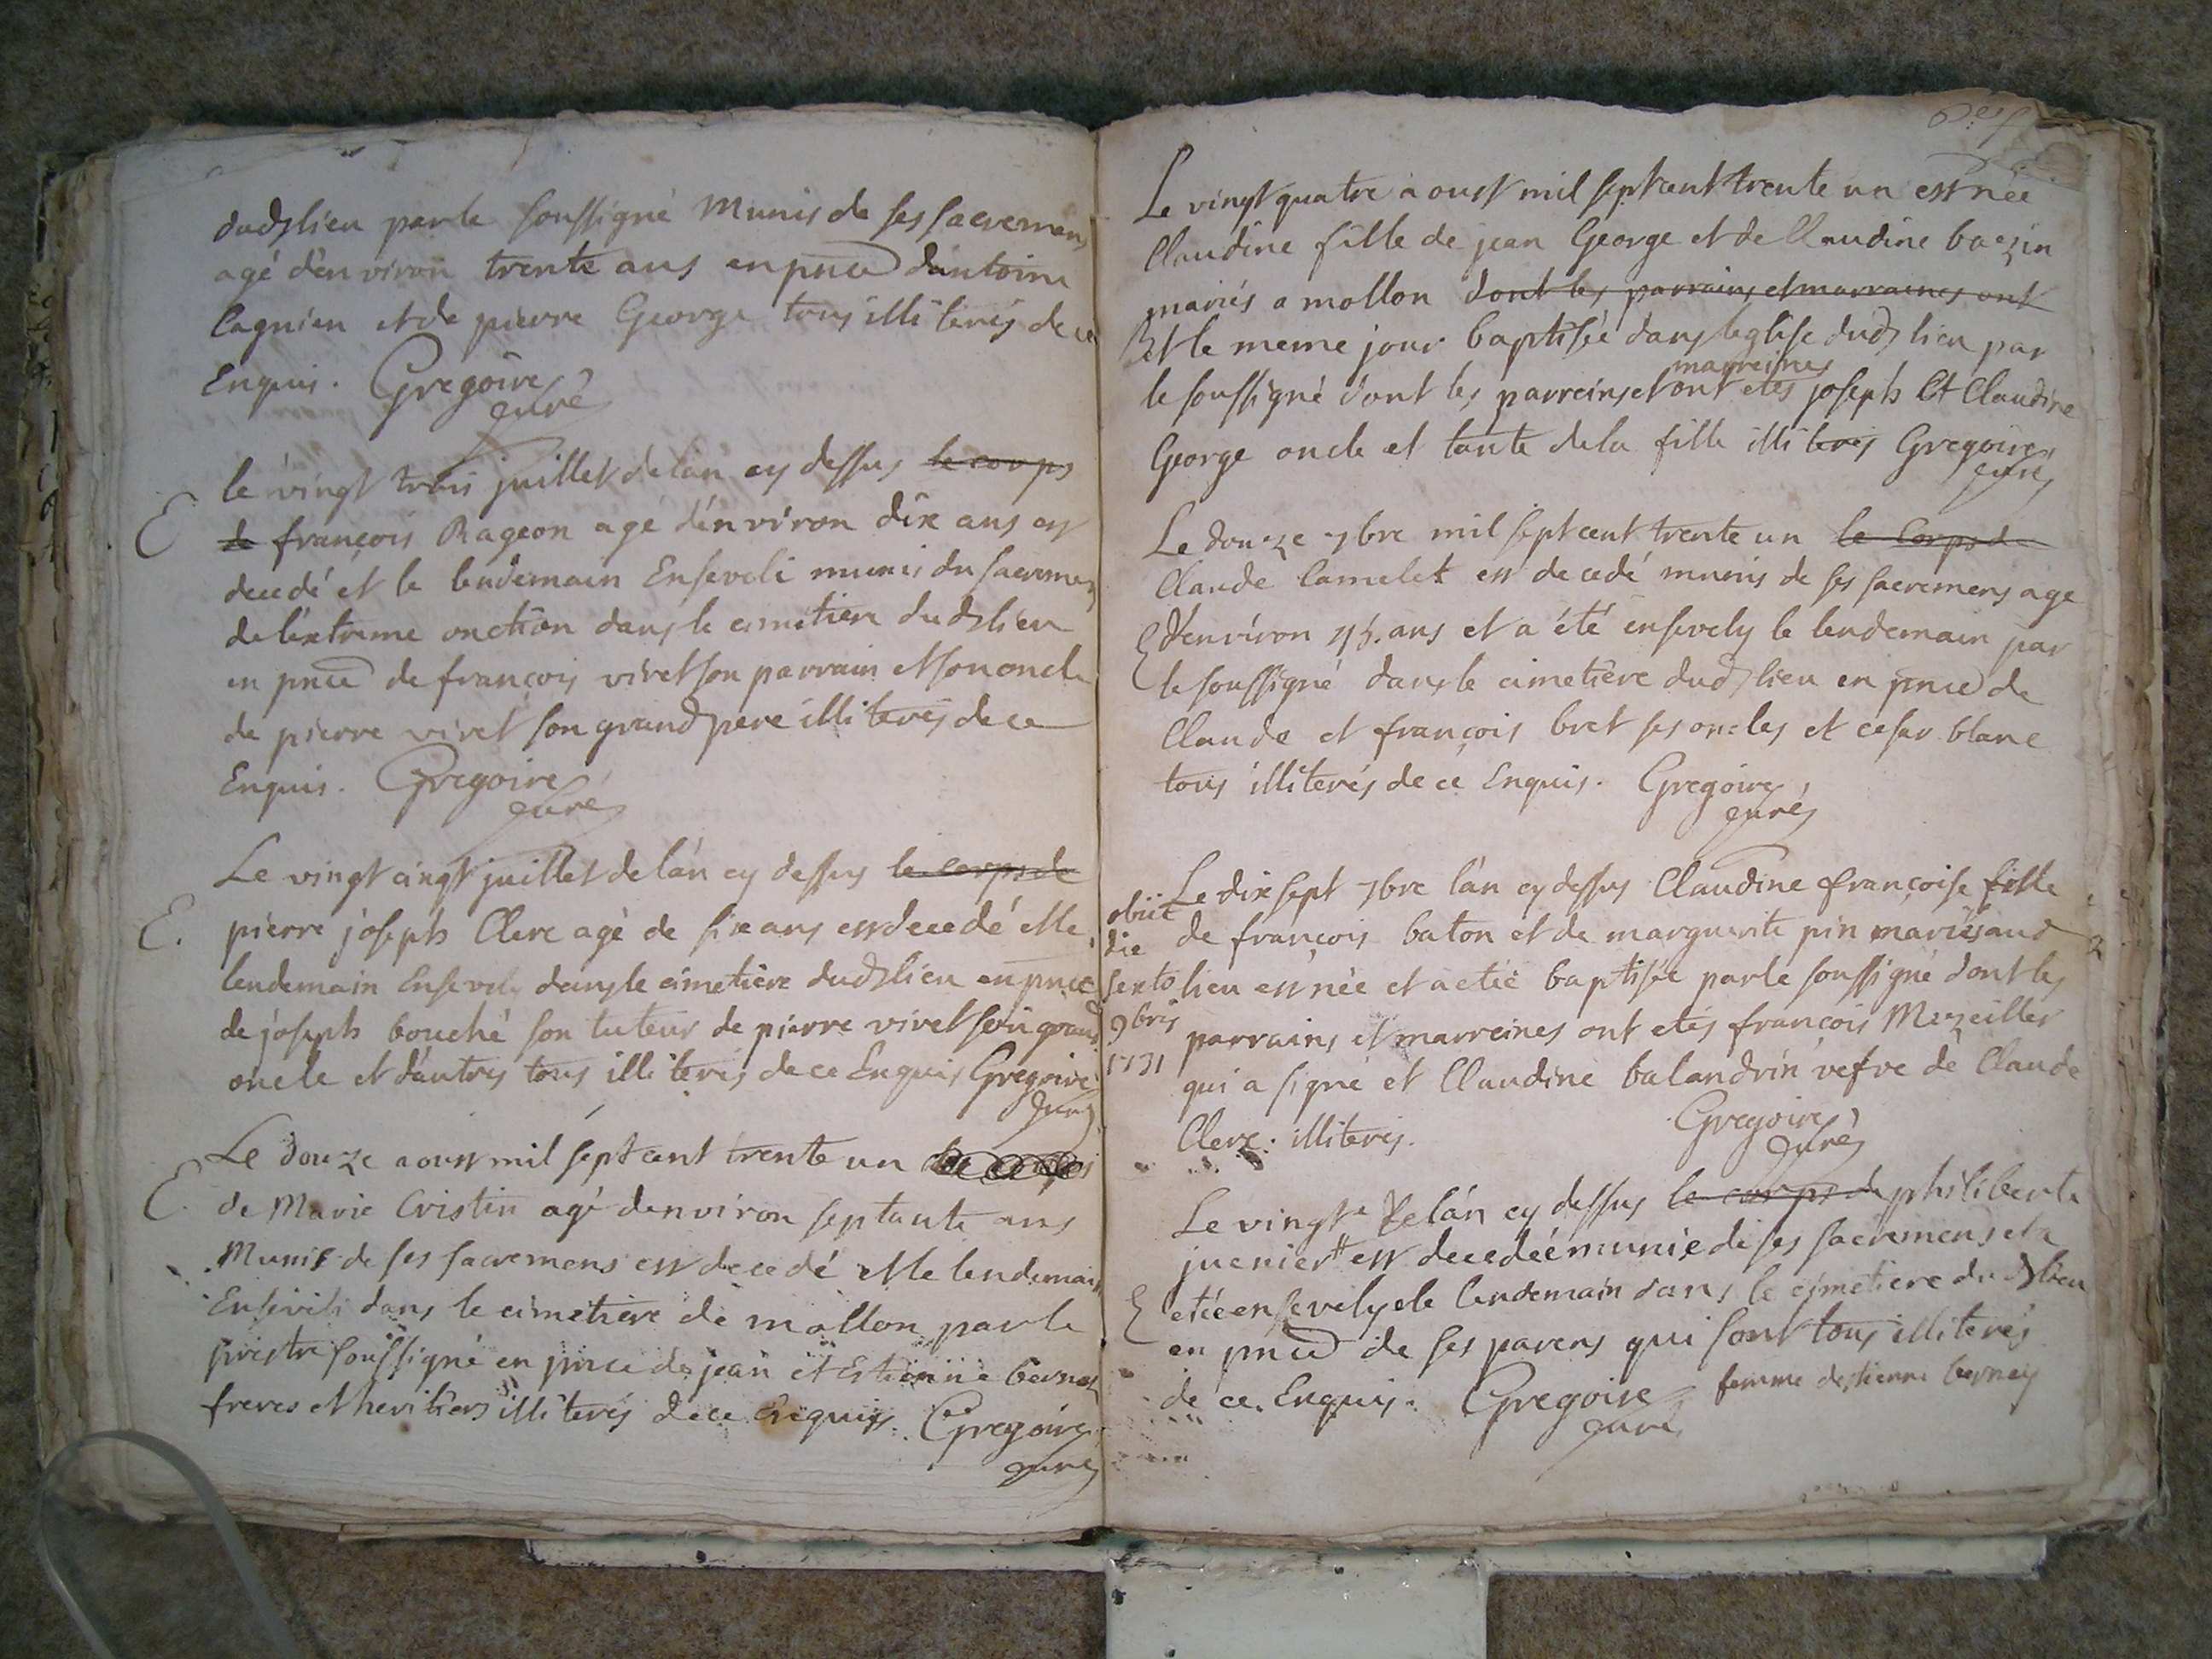 dud lieu par le soussigné Munis de ses sacremens
agé d'environ trente ans en pnce d'antoine
Cagnien et de pierre George tous illiterés de ce
Enquis. Gregoire
curé
le vingt trois juillet de l'an cy dessus le corps
E
de françois Rageon agé d'environ dix ans est
decedé et le lendemain Enseveli munis du sacremen
de l'extreme onction dans le cimetiere dud lieu
en pnce de françois viret son parrain et son oncle
de pierre viret son grand pere illiterés de ce
Enquis. Gregoire
curé
Le vingt cinqt juillet de l'an cy dessus le corps de
E. pierre joseph Clerc agé de six ans est decedé et le
lendemain Ensevely dans le cimetière dud lieu en pnce
de joseph bouché son tuteur de pierre viret son grand
oncle et d'autres tous illiterés de ce Enquis Gregoire
curé
Le douze aoust mil sept cent trente un
E. de Marie Cristin agé d'environ septante ans
Munis de ses sacremens est decedé et le lendemain
Enseveli dans le cimetière de mollon par le
prestre soussigné en pnce de jean et Estienne
freres et heritiers illiterés de ce enquis. Gregoire
curé
Le vingt quatre aoust mil sept cent trente un est née
Claudine fille de jean George et de Claudine bazin
mariés a mollon dont les parrains et marraines ont
B et le meme jour baptisée dans leglise dud lieu par
marreines
le soussigné dont les parreins et ont etés joseph et Claudine
George oncle et tante de la fille illiterés Gregoire
curé
Le douze 7bre mil sept cent trente un le corps de
Claude Camelet est decedé munis de ses sacremens age
E d'environ ans et a été ensevely le lendemain par
le soussigné dans le cimetière dud lieu en pnce de
Claude et françois bret ses oncles et cesar blanc
tous illiterés de ce Enquis. Gregoire
curé
Le dix sept 7bre l'an cy dessus Claudine françoise fille
obiit
die
sexto
9bris
1731
de françois baton et de marguerite pin mariés aud
lieu est née et a etié baptisée par le soussigné dont les
parrains et marreines ont etés françois Mezeiller
qui a signé et Claudine balandrin vefve de Claude
Clerc. illiterés.
Gregoire
curé
Le vingt de l'an cy dessus le corps de philiberte
juenier # est decedée munie de ses sacremens et a
E etée ensevelye le lendemain dans le cimetiere dud lieu
en pnce de ses parens qui sont tous illiterés
de ce Enquis. Gregoire femme destienne bernay
curé